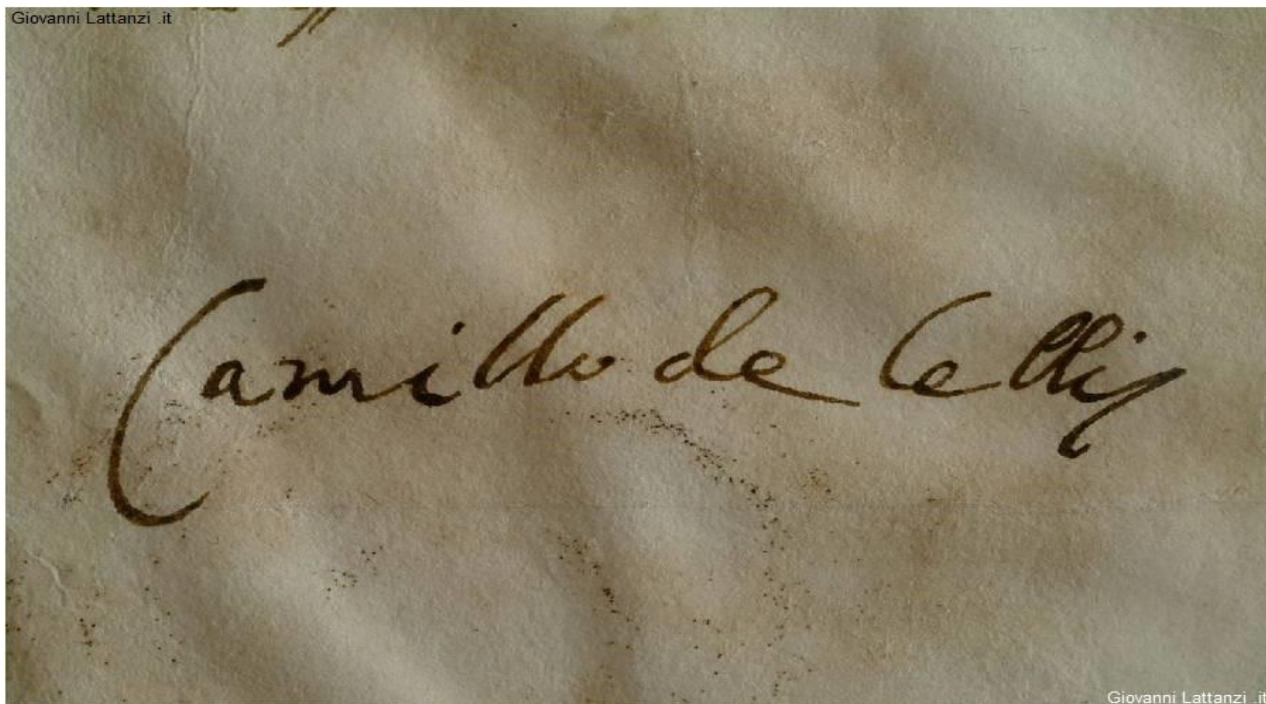 Giovanni Lattanzi .it
Camillo de Lellis
Giovanni Lattanzi .it